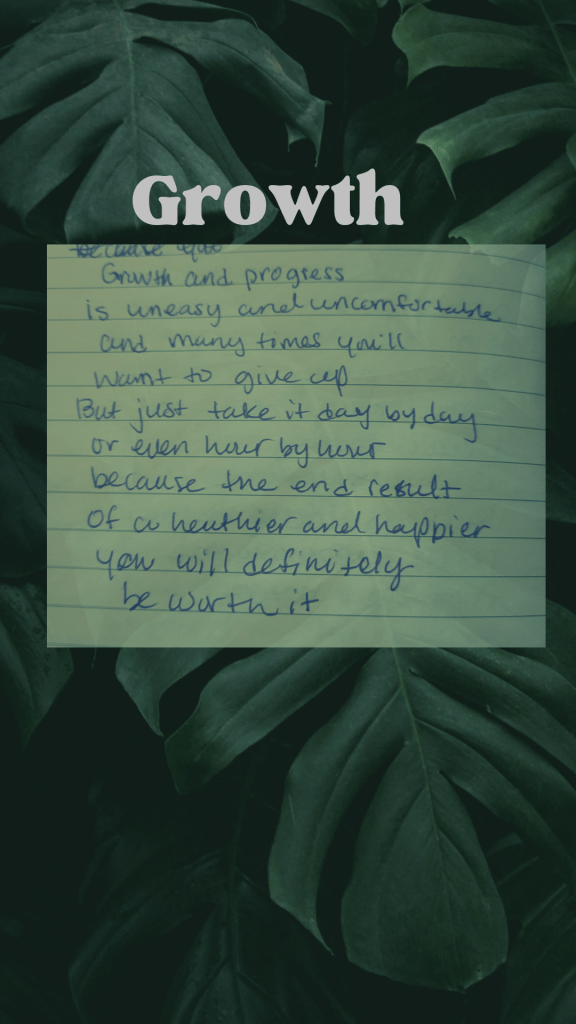 Growth
because
Growth and progress
is uneasy and uncomfortable
and many times you'll
want to give up
But just take it day by day
or even hour by hour
because the end result
Of a healthier and happier
you will definitely
be worth it